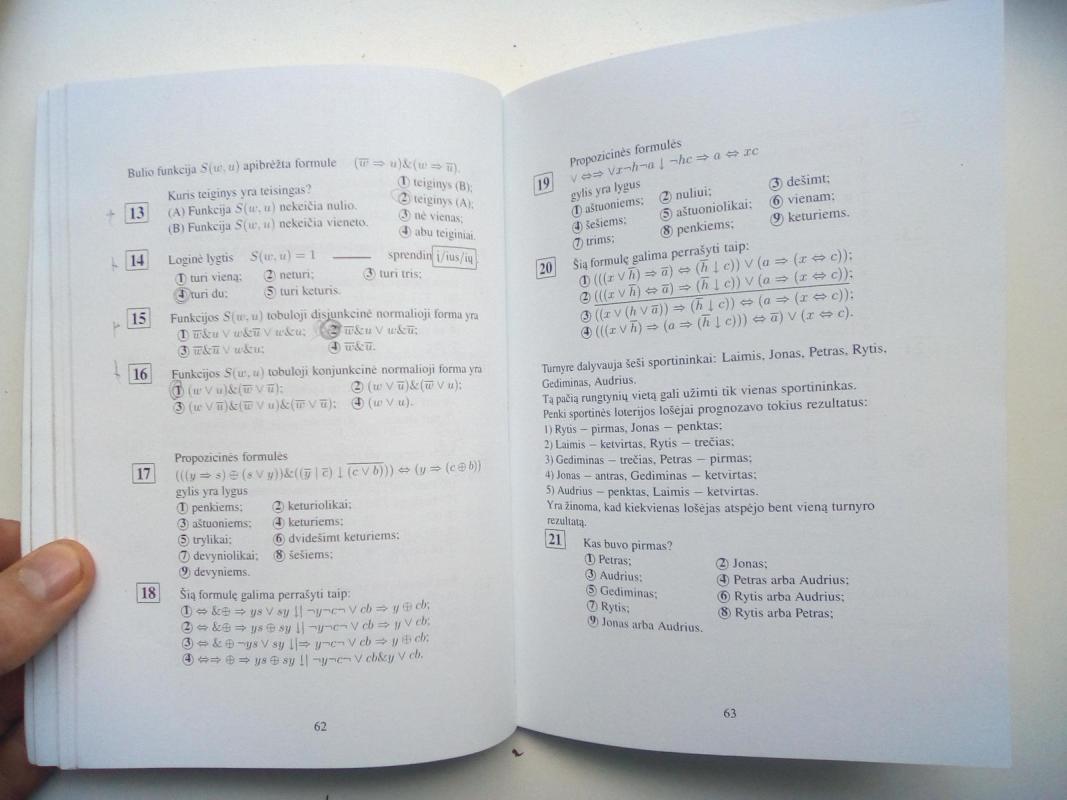 Bulio funkcija S(w, u) apibrėžta formule (w̅ ⇒ u)&(w ⇒ u̅).
13 Kuris teiginys yra teisingas? ① teiginys (B);
(A) Funkcija S(w, u) nekeičia nulio. ② teiginys (A);
(B) Funkcija S(w, u) nekeičia vieneto. ③ nė vienas;
④ abu teiginiai.
14 Loginė lygtis S(w, u) = 1 _____ sprendin i/ius/ių.
① turi vieną; ② neturi; ③ turi tris;
④ turi du; ⑤ turi keturis.
15 Funkcijos S(w, u) tobuloji disjunkcinė normalioji forma yra
① w̅&u ∨ w&u̅ ∨ w&u; ② w̅&u ∨ w&u̅;
③ w̅&u̅ ∨ w&u; ④ w̅&u̅.
16 Funkcijos S(w, u) tobuloji konjunkcinė normalioji forma yra
① (w ∨ u)&(w̅ ∨ u̅); ② (w ∨ u̅)&(w̅ ∨ u);
③ (w ∨ u̅)&(w̅ ∨ u)&(w̅ ∨ u̅); ④ (w ∨ u).
Propozicinės formulės
17 (((y ⇒ s) ⊕ (s ∨ y))&((y̅ | c̅) ↓ (c̅ ̅∨̅ ̅b̅))) ⇔ (y ⇒ (c ⊕ b))
gylis yra lygus
① penkiems; ② keturiolikai;
③ aštuoniems; ④ keturiems;
⑤ trylikai; ⑥ dvidešimt keturiems;
⑦ devyniolikai; ⑧ šešiems;
⑨ devyniems.
18 Šią formulę galima perrašyti taip:
① ⇔ &⊕ ⇒ ys ∨ sy ↓| ¬y¬c¬ ∨ cb ⇒ y ⊕ cb;
② ⇔ &⊕ ⇒ ys ⊕ sy ↓| ¬y¬c¬ ∨ cb ⇒ y ∨ cb;
③ ⇔ & ⊕ ¬ys ∨ sy ↓|⇒ y¬c¬ ∨ cb ⇒ y ⊕ cb;
④ ⇔⇒ ⊕ ⇒ ys ⊕ sy ↓| ¬y¬c¬ ∨ cb&y ∨ cb.
62
Propozicinės formulės
19 ∨ ⇔⇒ ∨x¬h¬a ↓ ¬hc ⇒ a ⇔ xc
gylis yra lygus
① aštuoniems; ② nuliui; ③ dešimt;
④ šešiems; ⑤ aštuoniolikai; ⑥ vienam;
⑦ trims; ⑧ penkiems; ⑨ keturiems.
20 Šią formulę galima perrašyti taip:
① (((x ∨ h̅) ⇒ a̅) ⇔ (h̅ ↓ c)) ∨ (a ⇒ (x ⇔ c));
② (((x ∨ h̅) ⇔ a̅) ⇒ (h̅ ↓ c)) ∨ (a ⇒ (x ⇔ c));
③ ((x ∨ (h ∨ a̅)) ⇒ (h̅ ↓ c)) ⇔ (a ⇒ (x ⇔ c));
④ (((x ∨ h̅) ⇒ (a ⇒ (h̅ ↓ c))) ⇔ a̅) ∨ (x ⇔ c).
Turnyre dalyvauja šeši sportininkai: Laimis, Jonas, Petras, Rytis,
Gediminas, Audrius.
Tą pačią rungtynių vietą gali užimti tik vienas sportininkas.
Penki sportinės loterijos lošėjai prognozavo tokius rezultatus:
1) Rytis – pirmas, Jonas – penktas;
2) Laimis – ketvirtas, Rytis – trečias;
3) Gediminas – trečias, Petras – pirmas;
4) Jonas – antras, Gediminas – ketvirtas;
5) Audrius – penktas, Laimis – ketvirtas.
Yra žinoma, kad kiekvienas lošėjas atspėjo bent vieną turnyro
rezultatą.
21 Kas buvo pirmas?
① Petras; ② Jonas;
③ Audrius; ④ Petras arba Audrius;
⑤ Gediminas; ⑥ Rytis arba Audrius;
⑦ Rytis; ⑧ Rytis arba Petras;
⑨ Jonas arba Audrius.
63